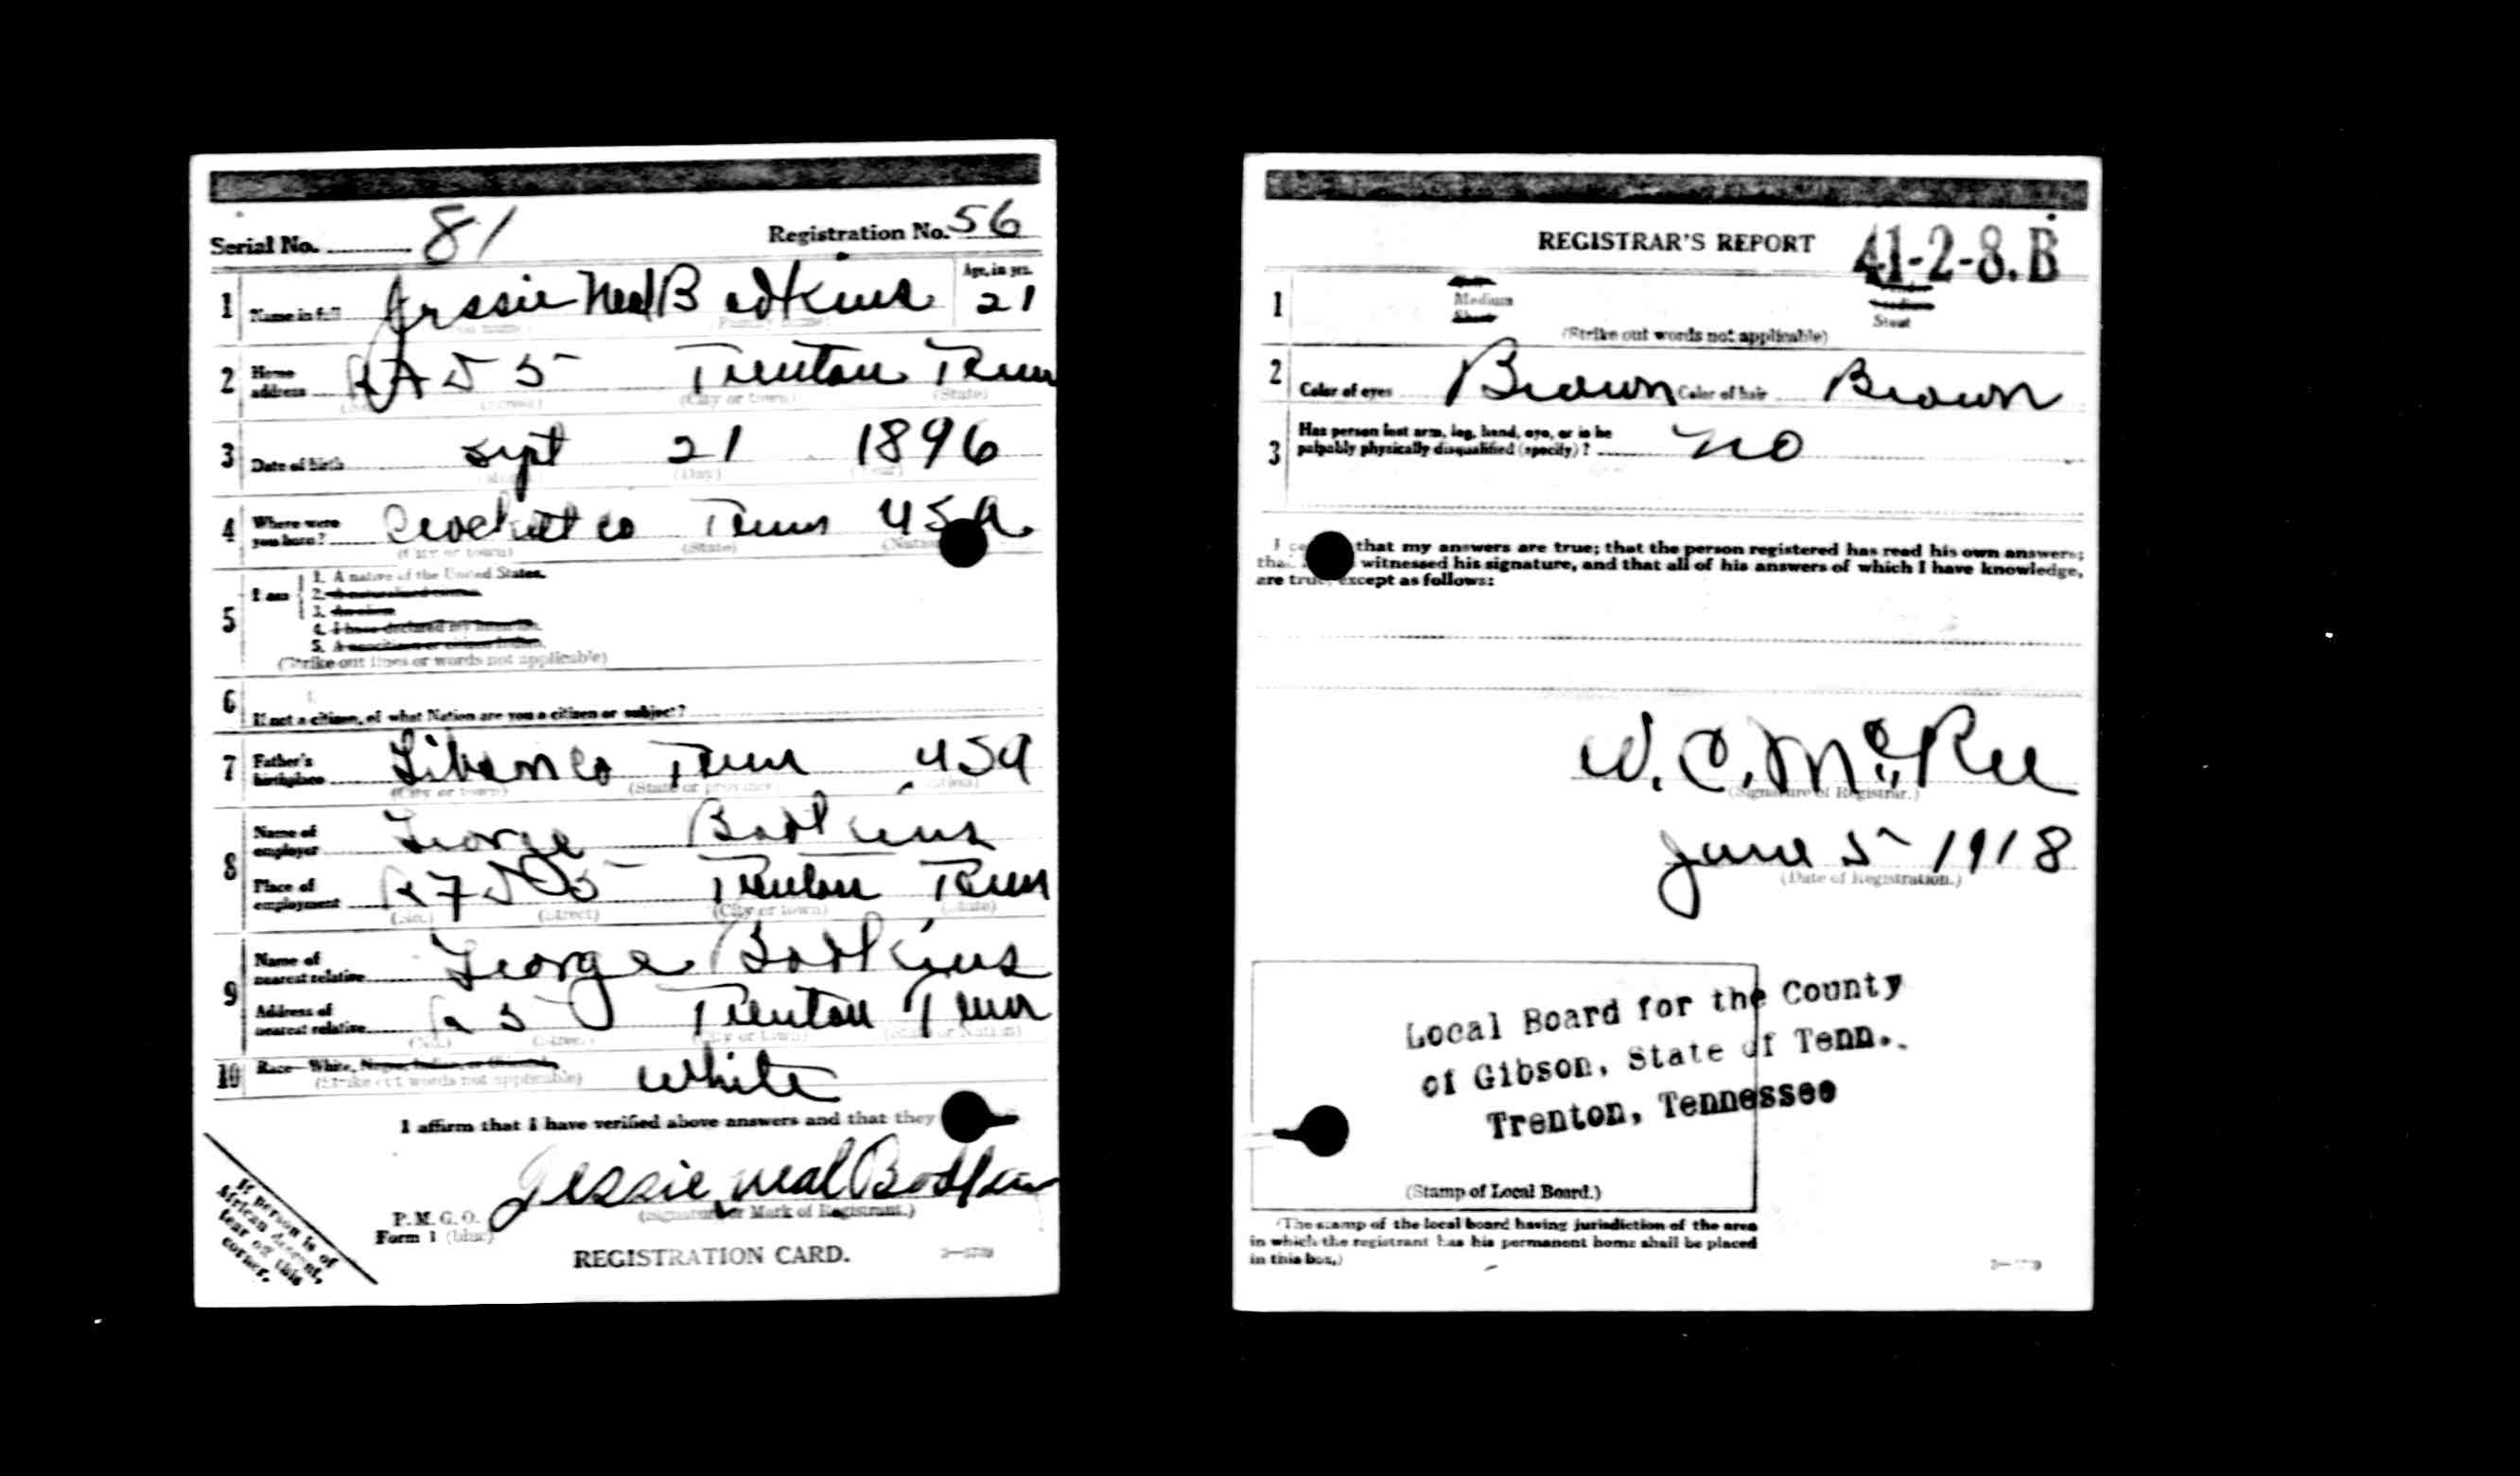 Serial No. 81 Registration No. 56
1 Name in full Jessie Neal Bodkins Age, in yrs. 21
2 Home address RFD 5 Trenton Tenn
(City or town) (State)
3 Date of birth Sept 21 1896
(Day)
4 Where were you born? Crockett co Tenn USA
(City or town) (State)
5 I am 1. A native of the United States.
2. A naturalized citizen.
3. An alien.
4. I have declared my intention.
5. A noncitizen or citizen Indian.
(Strike out lines or words not applicable)
6 If not a citizen, of what Nation are you a citizen or subject?
7 Father's birthplace Gibson Co Tenn USA
(City or town) (State or province)
8 Name of employer George Bodkins
Place of employment RFD 5 Trenton Tenn
(No.) (Street) (City or town) (State)
9 Name of nearest relative George Bodkins
Address of nearest relative R 5 Trenton Tenn
(No.) (Street) (City or town) (State or Nation)
10 Race—White, Negro, Indian, or Oriental. White
(Strike out words not applicable)
I affirm that I have verified above answers and that they
Jessie Neal Bodkins
(Signature or Mark of Registrant.)
P. M. G. O.
Form 1 (blue)
REGISTRATION CARD.
If person is of
African descent,
tear off this
corner.
REGISTRAR'S REPORT 41-2-8. B
1 Medium
Short Stout
(Strike out words not applicable)
2 Color of eyes Brown Color of hair Brown
3 Has person lost arm, leg, hand, eye, or is he
palpably physically disqualified (specify)? no
I that my answers are true; that the person registered has read his own answers;
that witnessed his signature, and that all of his answers of which I have knowledge,
are true, except as follows:
W. C. McRee
(Signature of Registrar.)
June 5 1918
(Date of Registration.)
Local Board for the County
of Gibson, State of Tenn.
Trenton, Tennessee
(Stamp of Local Board.)
(The stamp of the local board having jurisdiction of the area
in which the registrant has his permanent home shall be placed
in this box.)